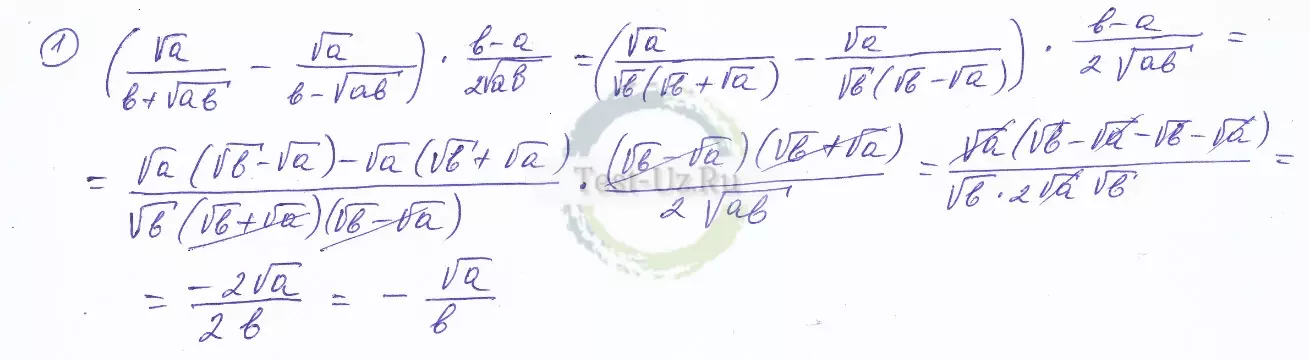 ① (√a/(b+√ab) − √a/(b−√ab)) · (b−a)/(2√ab) = (√a/(√b(√b+√a)) − √a/(√b(√b−√a))) · (b−a)/(2√ab) =
= (√a(√b−√a)−√a(√b+√a))/(√b(√b+√a)(√b−√a)) · ((√b−√a)(√b+√a))/(2√ab) = (√a(√b−√a−√b−√a))/(√b·2√a√b) =
Test-Uz.Ru
= (−2√a)/(2b) = − √a/b